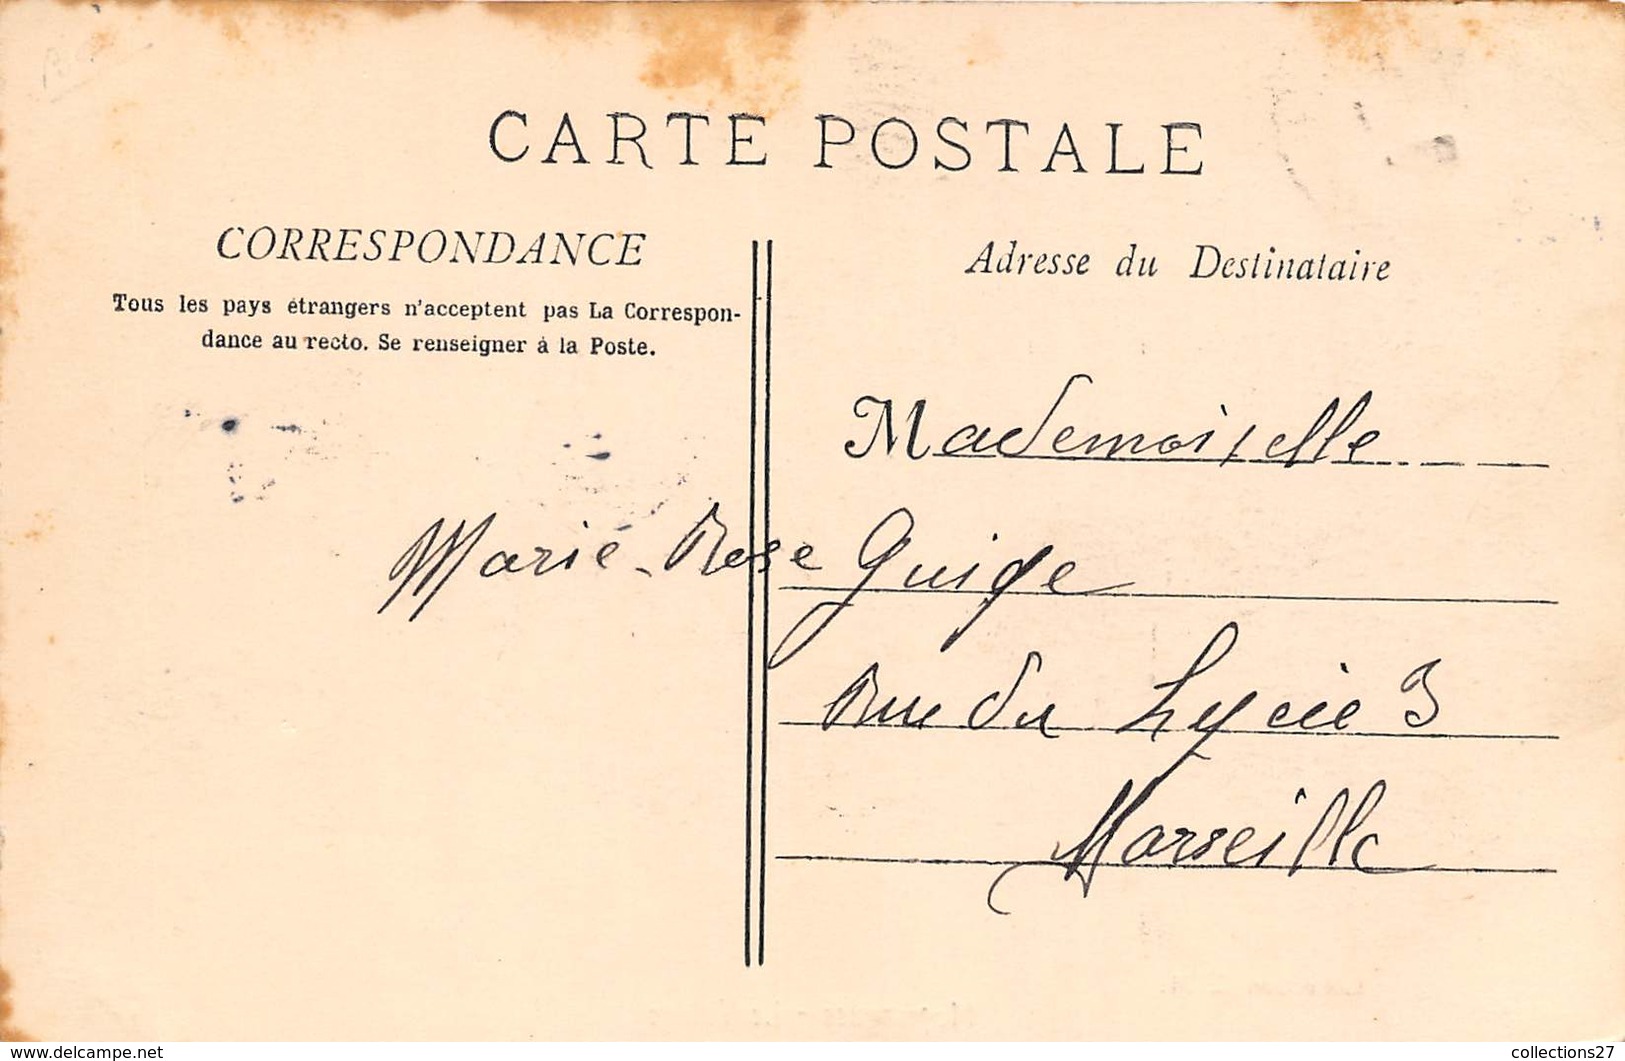 CARTE POSTALE
CORRESPONDANCE
Tous les pays étrangers n'acceptent pas La Correspon-
dance au recto. Se renseigner à la Poste.
Adresse du Destinataire
Mademoiselle
Marie-Rose Guide
Rue du Lycée 3
Marseille
www.delcampe.net
collections27